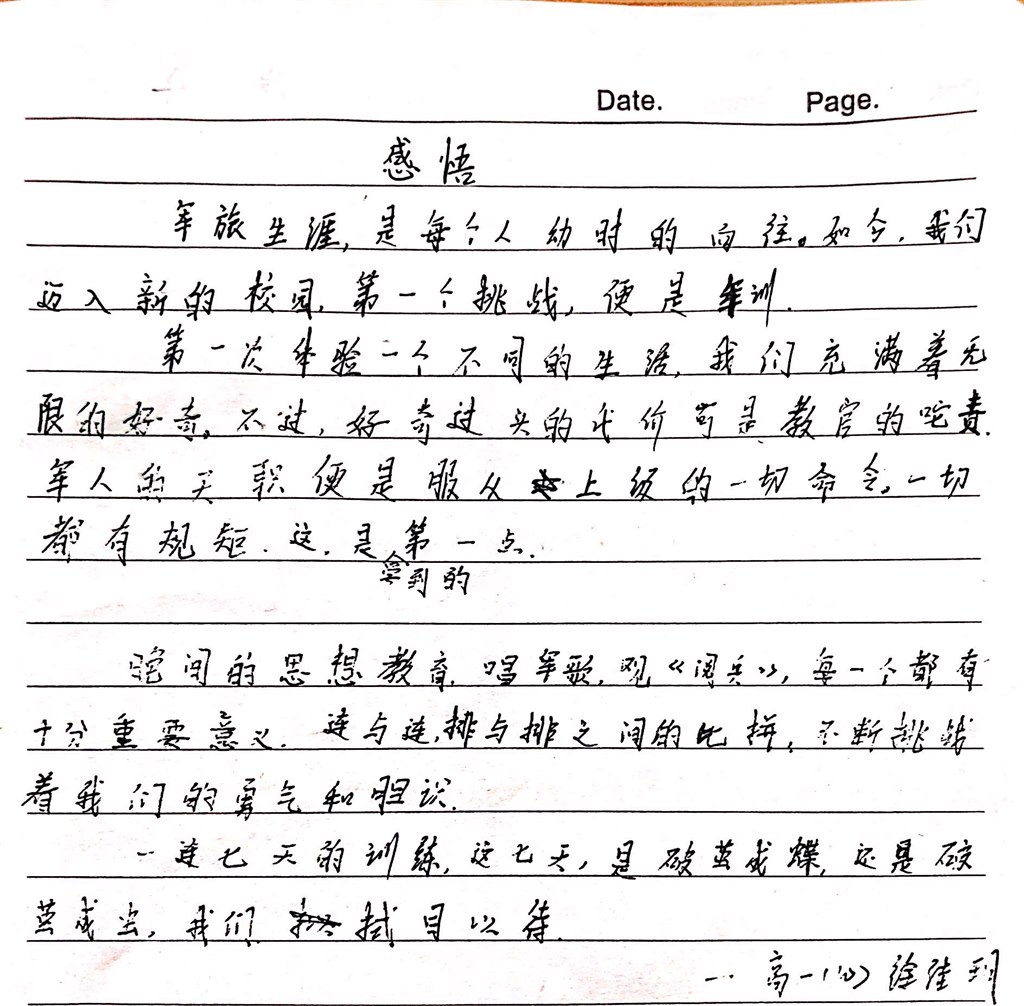 Date. Page.
感悟
军旅生涯,是每个人幼时的向往。如今,我们
迈入新的校园,第一个挑战,便是军训.
第一次体验一个不同的生活,我们充满着无
限的好奇。不过,好奇过头的代价可是教官的咤责.
军人的天职便是服从上级的一切命令。一切
都有规矩.这,是第一点.
拿到的
晚间的思想教育,唱军歌,观《阅兵》,每一个都有
十分重要意义.连与连,排与排之间的比拼,不断挑战
着我们的勇气和胆识.
一连七天的训练,这七天,是破茧成蝶,还是破
茧成虫,我们拭目以待.
高一 徐佳